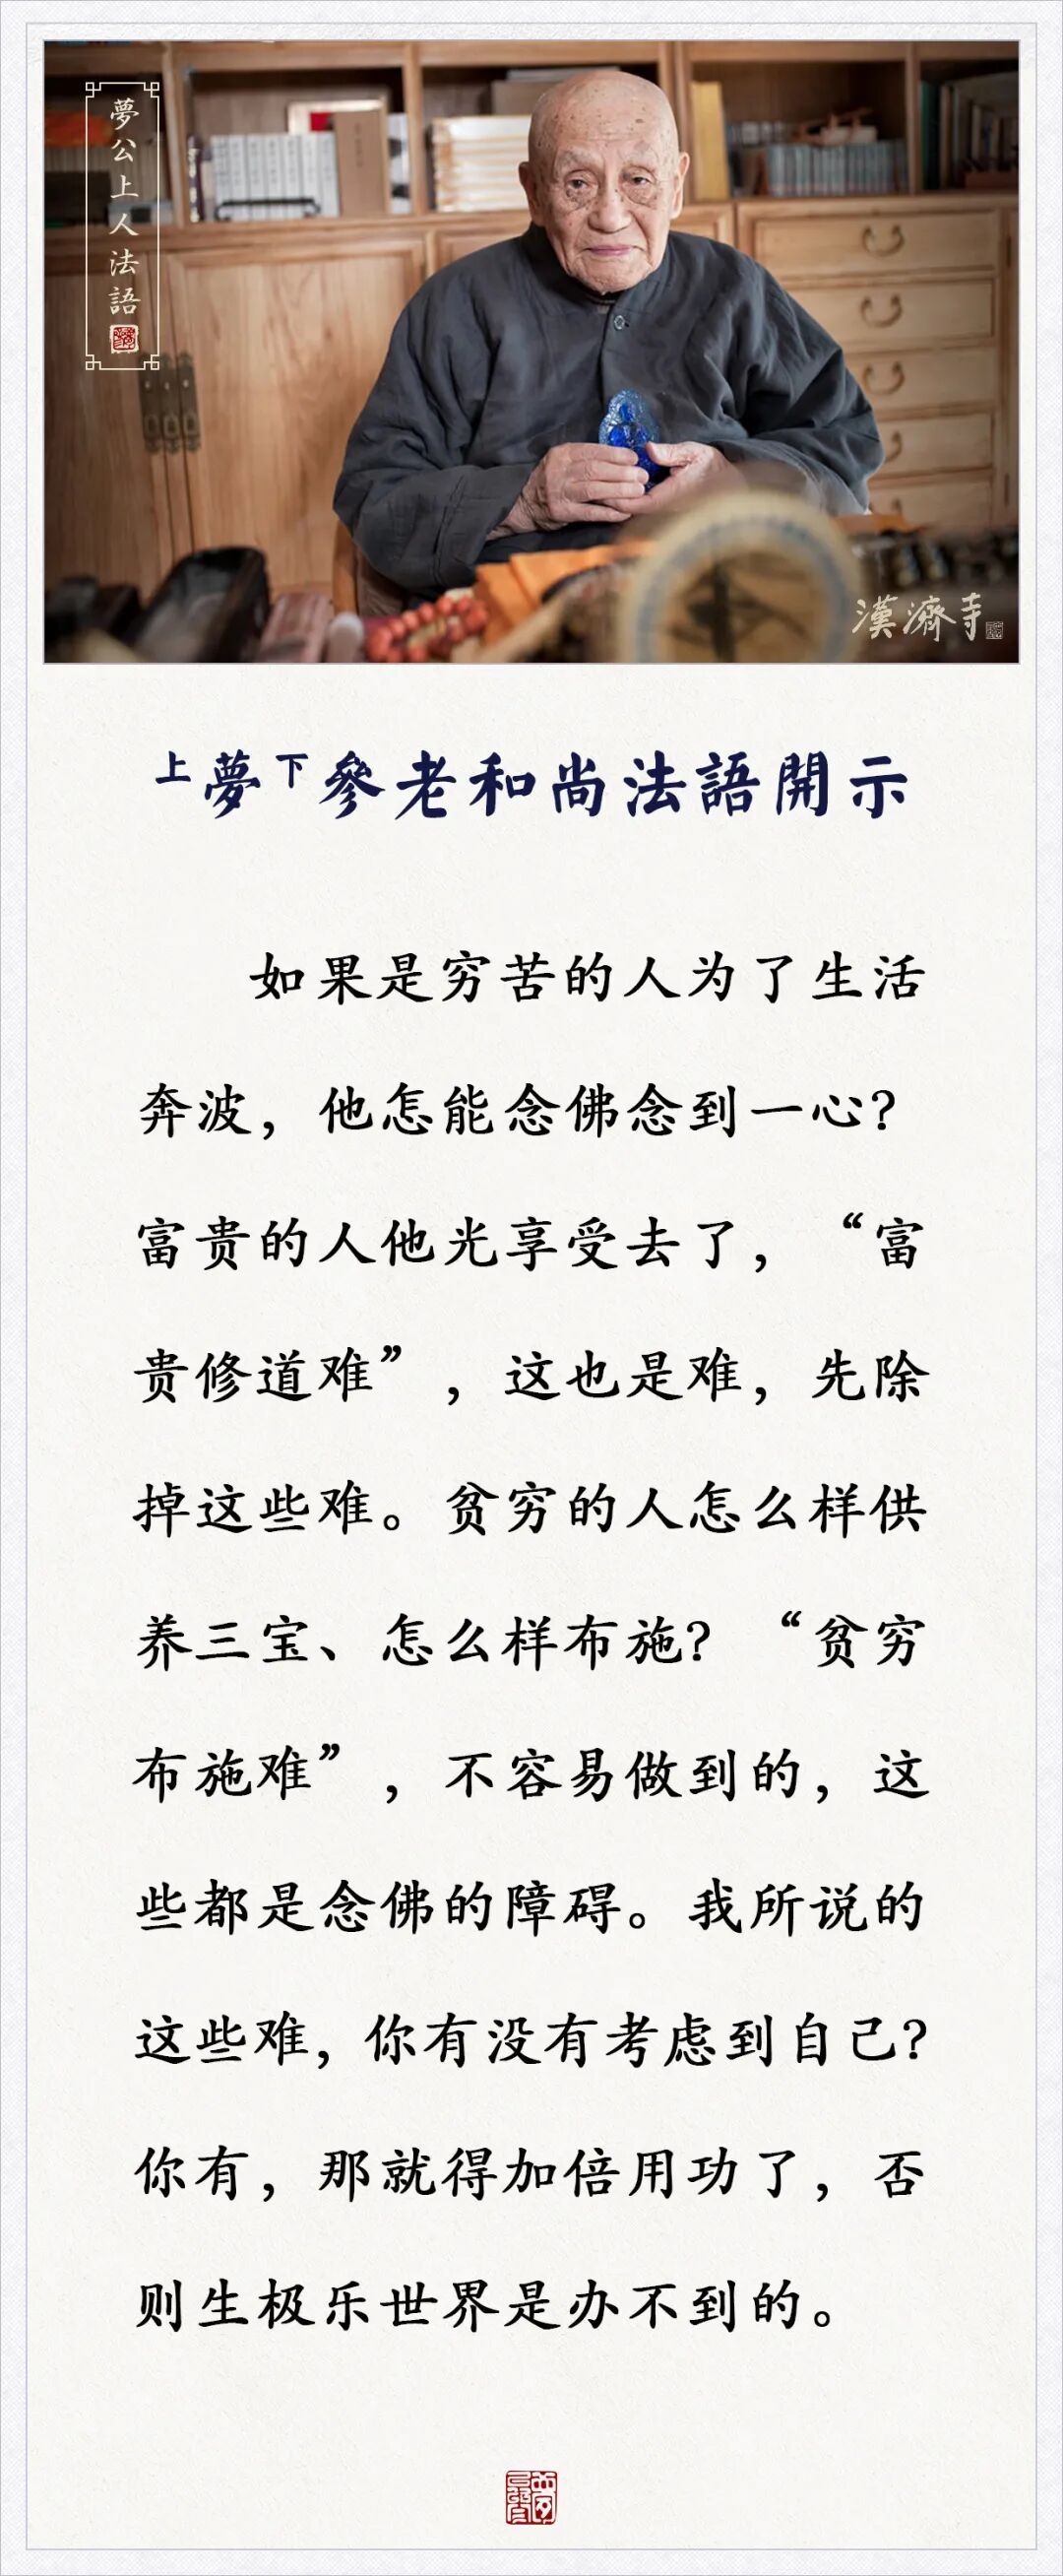 夢公上人法語
漢濟寺
上夢下參老和尚法語開示
如果是穷苦的人为了生活
奔波，他怎能念佛念到一心？
富贵的人他光享受去了，“富
贵修道难”，这也是难，先除
掉这些难。贫穷的人怎么样供
养三宝、怎么样布施？“贫穷
布施难”，不容易做到的，这
些都是念佛的障碍。我所说的
这些难，你有没有考虑到自己？
你有，那就得加倍用功了，否
则生极乐世界是办不到的。